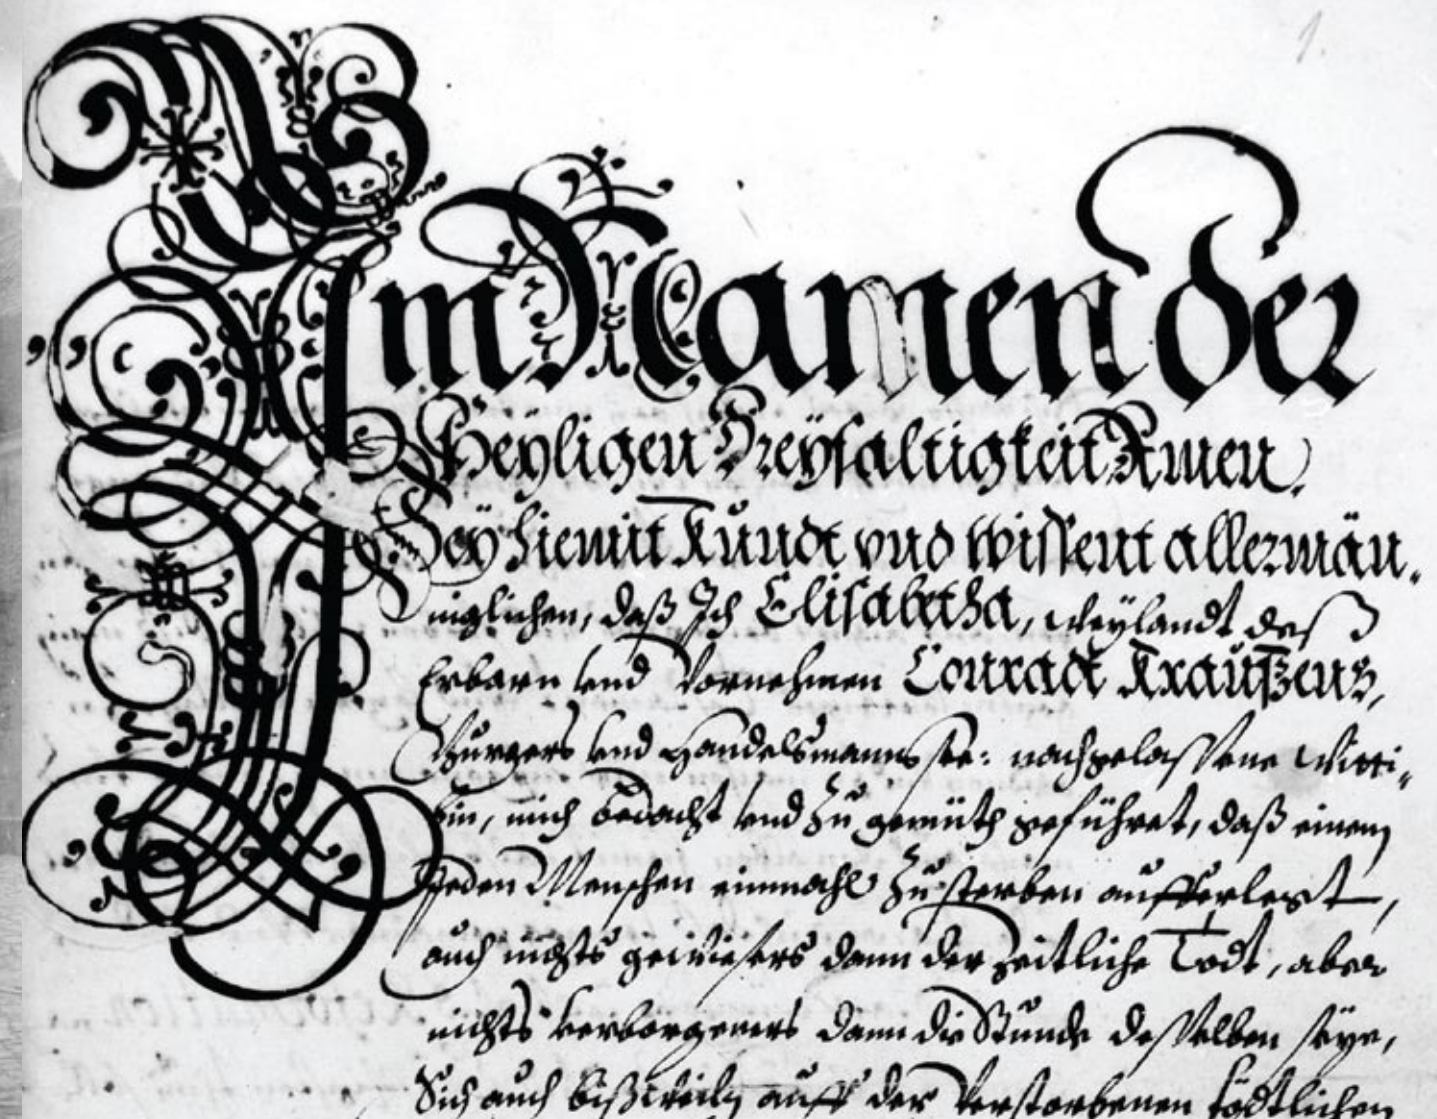 1.
Im Namen der
Heÿligen Dreyfaltigkeit Amen.
Seÿ hiemit Kundt vnd wissent allermän-
niglichen, daß Ich Elisabetha, weÿlandt deß
Erbarn vnd Vornehmen Conradt Kraußens,
Burgers vnd Handelsmanns see: nachgelassene Witti-
bin, mich bedacht vnd zu gemüth geführet, daß einem
Jeden Menschen einmahl zu sterben aufferlegt,
auch nichts gewiesers dann der zeitliche Todt, aber
nichts verborgeners dann die Stunde desselben seÿe,
Sich auch bißweiln auff der Verstorbenen tödtlichen